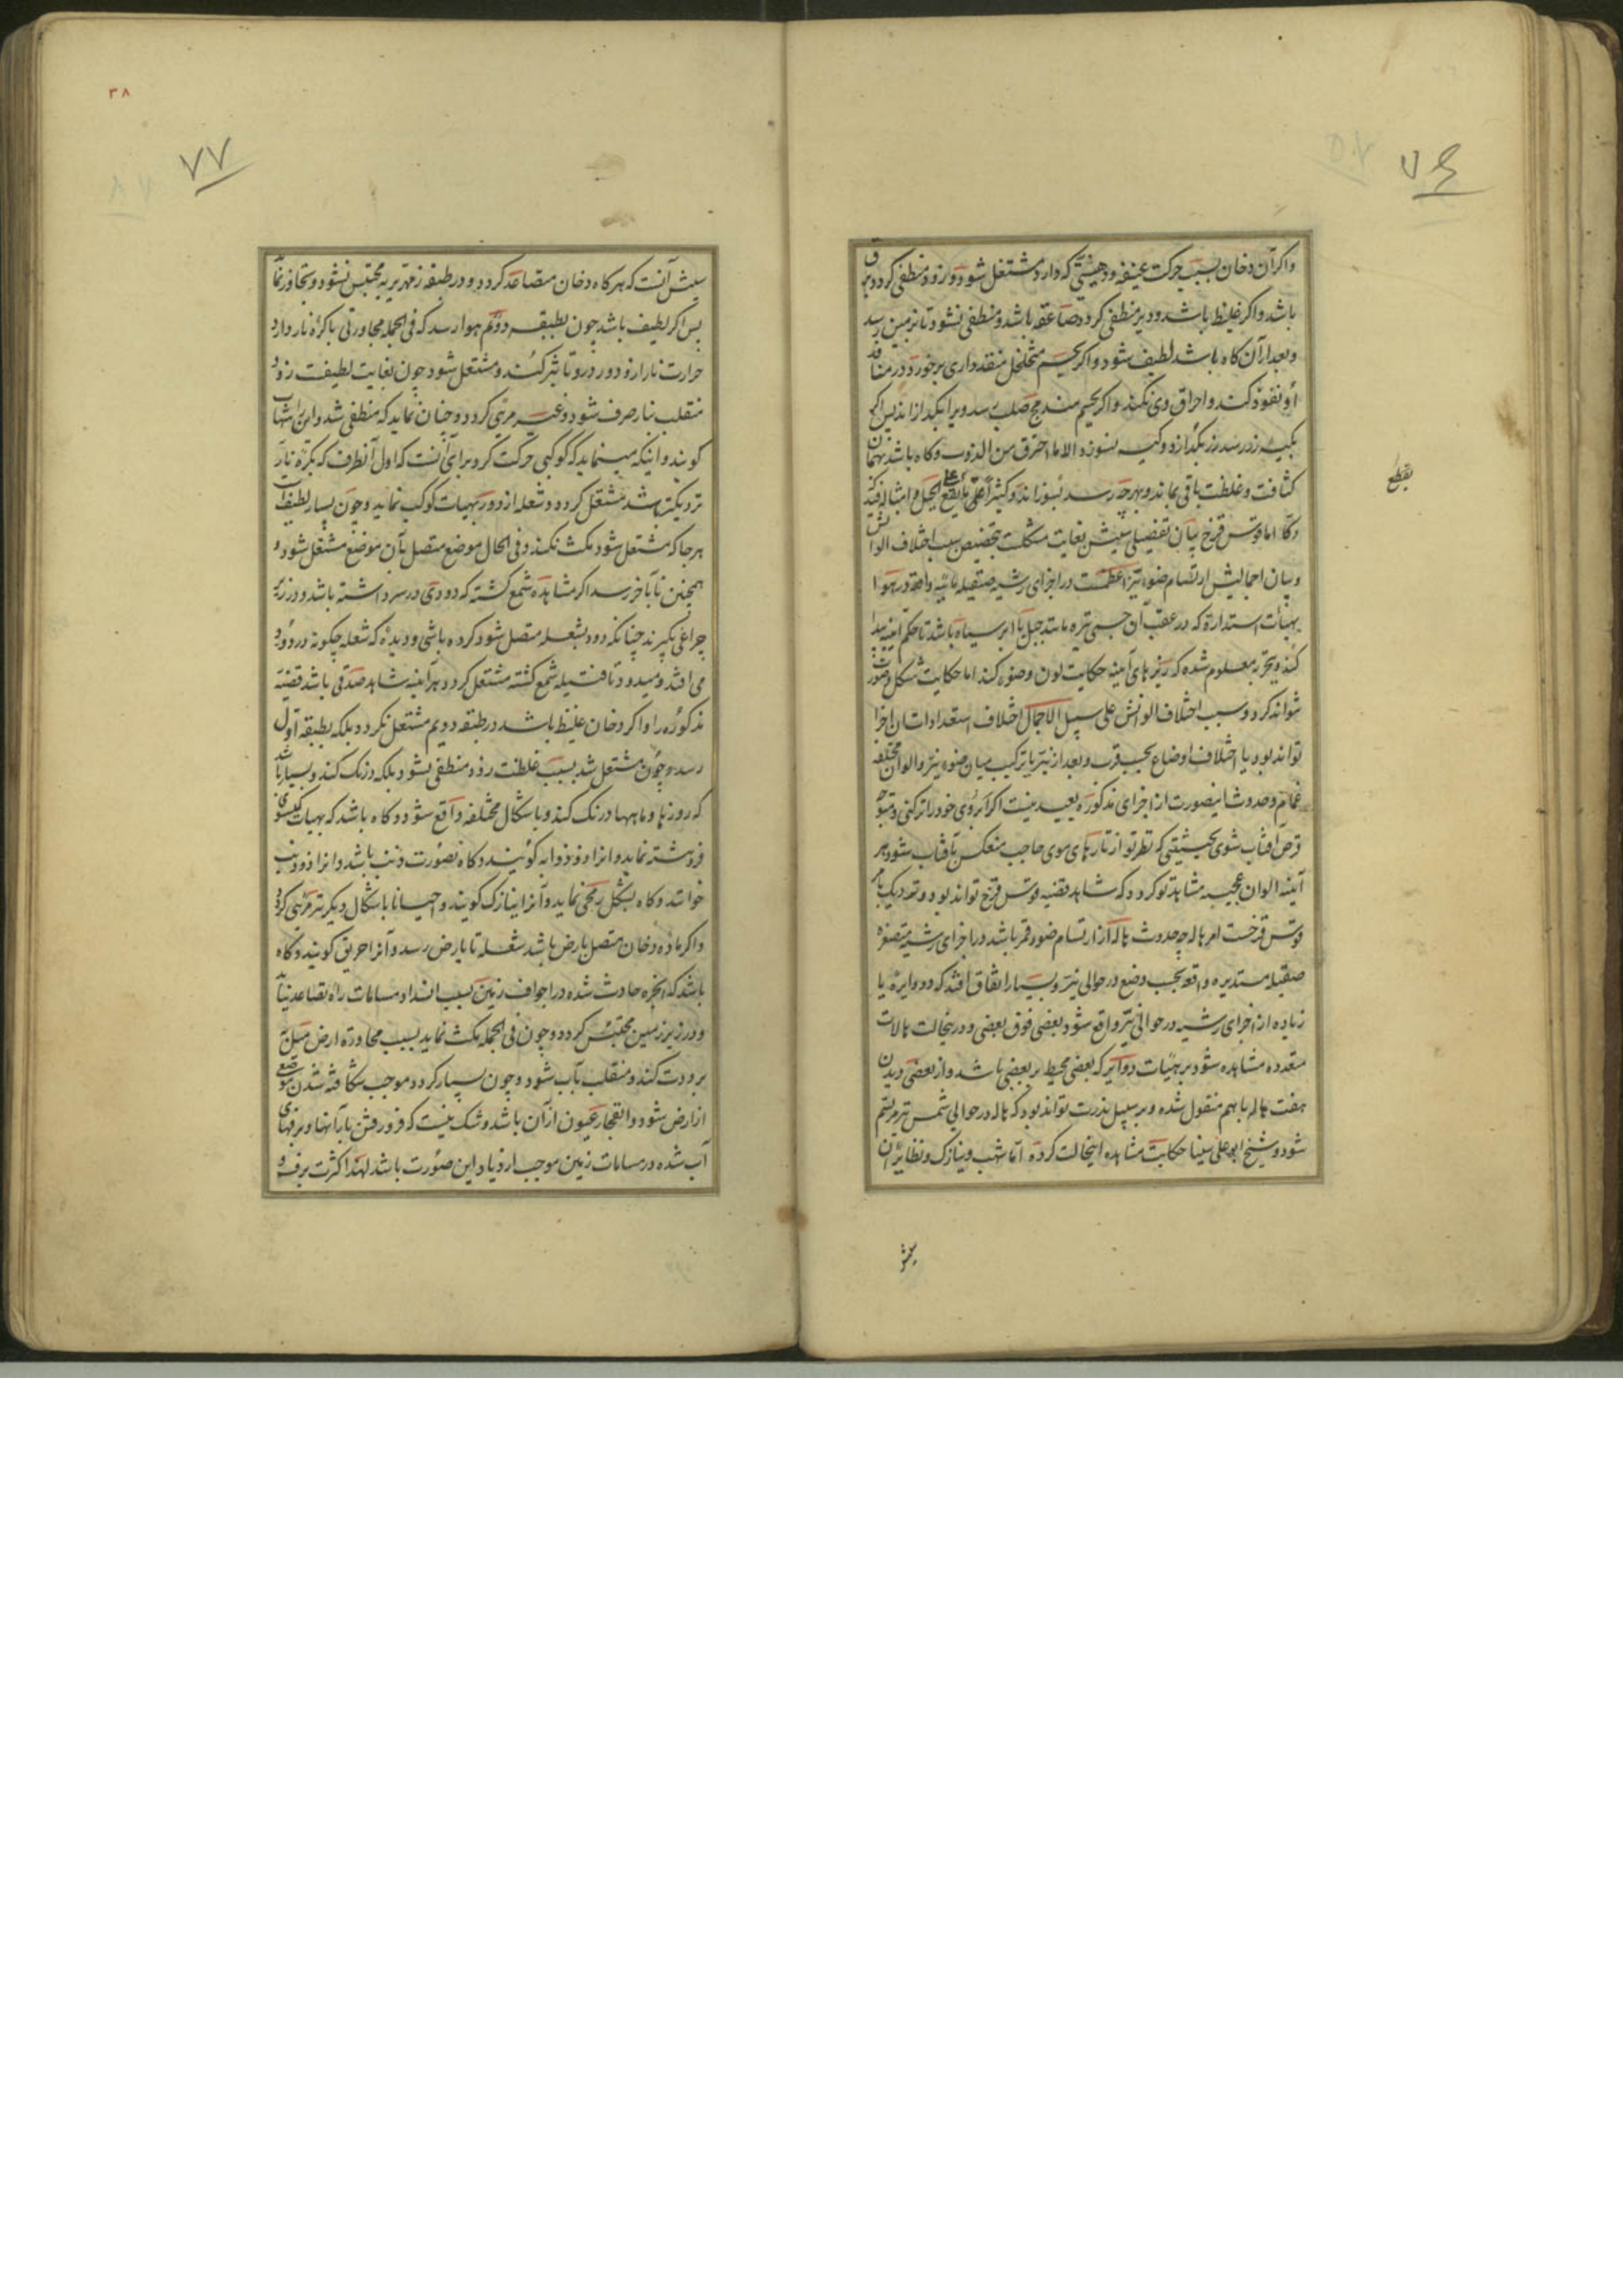 ۷۶
واکر آن دخان بسبب حرکت عنیفه و دهنیتی که دارد مشتعل شود و زود منطفی کردد برق
باشد و اکر غلیظ باشد و دیر منطفی کردد صاعقه باشد و منطفی نشود تا بزمین رسد
و بعد از آن کاه باشد لطیف شود و اکر بجسم متخلخل منفذداری برخورد در منافذ
او نفوذ کند و احراق وی نکند و اکر بجسم مندمج صلب رسد ویرا بکدازاند پس اکر
بکیسه زر رسد زر بکدازد و کیسه نسوزد الا ما احترق من الذوب و کاه باشد بهمان
کثافت و غلظت باقی بماند و بهر چه رسد بسوزاند و کثیرا ما یقع علی الجبل و امثاله فیدکه
دکا اما قوس قزح بیان تفصیلی سببش بغایت مشکلست بتخصیص سبب اختلاف الوانش
و بیان اجمالیش ارتسام ضوء نیر اعظمست در اجزای رشیه صقیله مائیه واقعه در هوا
بهیئات استداره که در عقب آن جسمی تیره مانند جبل یا ابر سیاه باشد تا حکم آینه پیدا
کند و بتجربه معلوم شده که ریزهای آینه حکایت لون و ضوء کند اما حکایت شکل و صورت
نتواند کرد و سبب اختلاف الوانش علی سبیل الاجمال اختلاف استعدادات ان اجزا
تواند بود یا اختلاف اوضاع بحسب قرب و بعد از نیر یا ترکیب میان ضوء نیر و الوان مختلفه
غمام و حدوث اینصورت از اجزای مذکوره بعید نیست اکر ابروی خود را تر کنی و متوجه
قرص آفتاب شوی بحیثیتی که نظر تو از تارهای موی حاجب منعکس بآفتاب شود هر
آینه الوان عجیبه مشاهد تو کردد که شاهد قضیه قوس قزح تواند بود و نزدیک بامر
قوس قزحست امر هاله چه حدوث هاله از ارتسام ضوء قمر باشد در اجزای رشیه متصغره
صقیله مستدیره واقعه بحسب وضع در حوالی نیر و بسیار اتفاق افتد که دو دایره یا
زیاده از اجزای رشیه در حوالی نیر واقع شود بعضی فوق بعضی و درینحالت هالات
متعدده مشاهده شود بر هیئات دوایر که بعضی محیط بر بعضی باشد و از بعضی دیدن
هفت هاله با بهم منقول شده و بر سبیل ندرت تواند بود که هاله در حوالی شمس نیز مرتسم
شود و شیخ ابو علی سینا حکایت مشاهده اینحالت کرده اما شهب و نیازک و نظایر آن
یقطع
سببش
۳۸
۷۷
سببش آنست که هر کاه دخان متصاعد کردد و در طبقه زمهریریه محتبس نشود و تجاوز نماید
پس اکر لطیف باشد چون بطبقه دویم هوا رسد که فی الجمله مجاورتی با کره نار دارد
حرارت نار از دور درو تاثیر کند و مشتعل شود چون بغایت لطیفست زود
منقلب بنار صرف شود و غیر مرئی کردد و چنان نماید که منطفی شد و این را شهاب
کویند و اینکه مینماید که کوکبی حرکت کرد برای آنست که اول آنطرف که بکره نار
نزدیکتر باشد مشتعل کردد و شعله از دور بهیات کوکب نماید و چون بسیار لطیفست
هر جا که مشتعل شود مکث نکند و فی الحال موضع متصل بآن موضع مشتعل شود و
همچنین تا بآخر رسد اکر مشاهده شمع کشته که دودی در سر داشته باشد و در زیر
چراغی بکیرند چنانکه دود بشعله متصل شود کرده باشی و دیده که شعله چکونه در دود
می افتد و میدود تا فتیله شمع کشته مشتعل کردد هر آینه شاهد صدقی باشد قضیه
مذکوره را و اکر دخان غلیظ باشد در طبقه دویم مشتعل نکردد بلکه بطبقه اول
رسد و چون مشتعل شد بسبب غلظت زود منطفی نشود بلکه درنک کند و بسیار باشد
که روزها و ماهها درنک کند و باشکال مختلفه واقع شود و کاه باشد که بهیات کیسوی
فروهشته نماید و انرا ذو ذوابه کویند و کاه بصورت ذنب باشد و انرا ذو ذنب
خوانند و کاه بشکل رمحی نماید و آنرا نیازک کویند و احیانا باشکال دیکر نیز مرئی کردد
و اکر ماده دخان متصل بارض باشد شعله تا بارض رسد و آنرا حریق کویند و کاه
باشد که ابخره حادث شده در اجواف زمین بسبب انسداد مسامات راه تصاعد نیابد
و در زیر زمین محتبس کردد و چون فی الجمله مکث نماید بسبب مجاورة ارض میل به
برودت کند و منقلب بآب شود و چون بسیار کردد موجب شکافته شدن موضعی
از ارض شود و انفجار عیون از آن باشد و شک نیست که فرو رفتن بارانها و برفهای
آب شده در مسامات زمین موجب ازدیاد این صورت باشد لهذا کثرت برف و